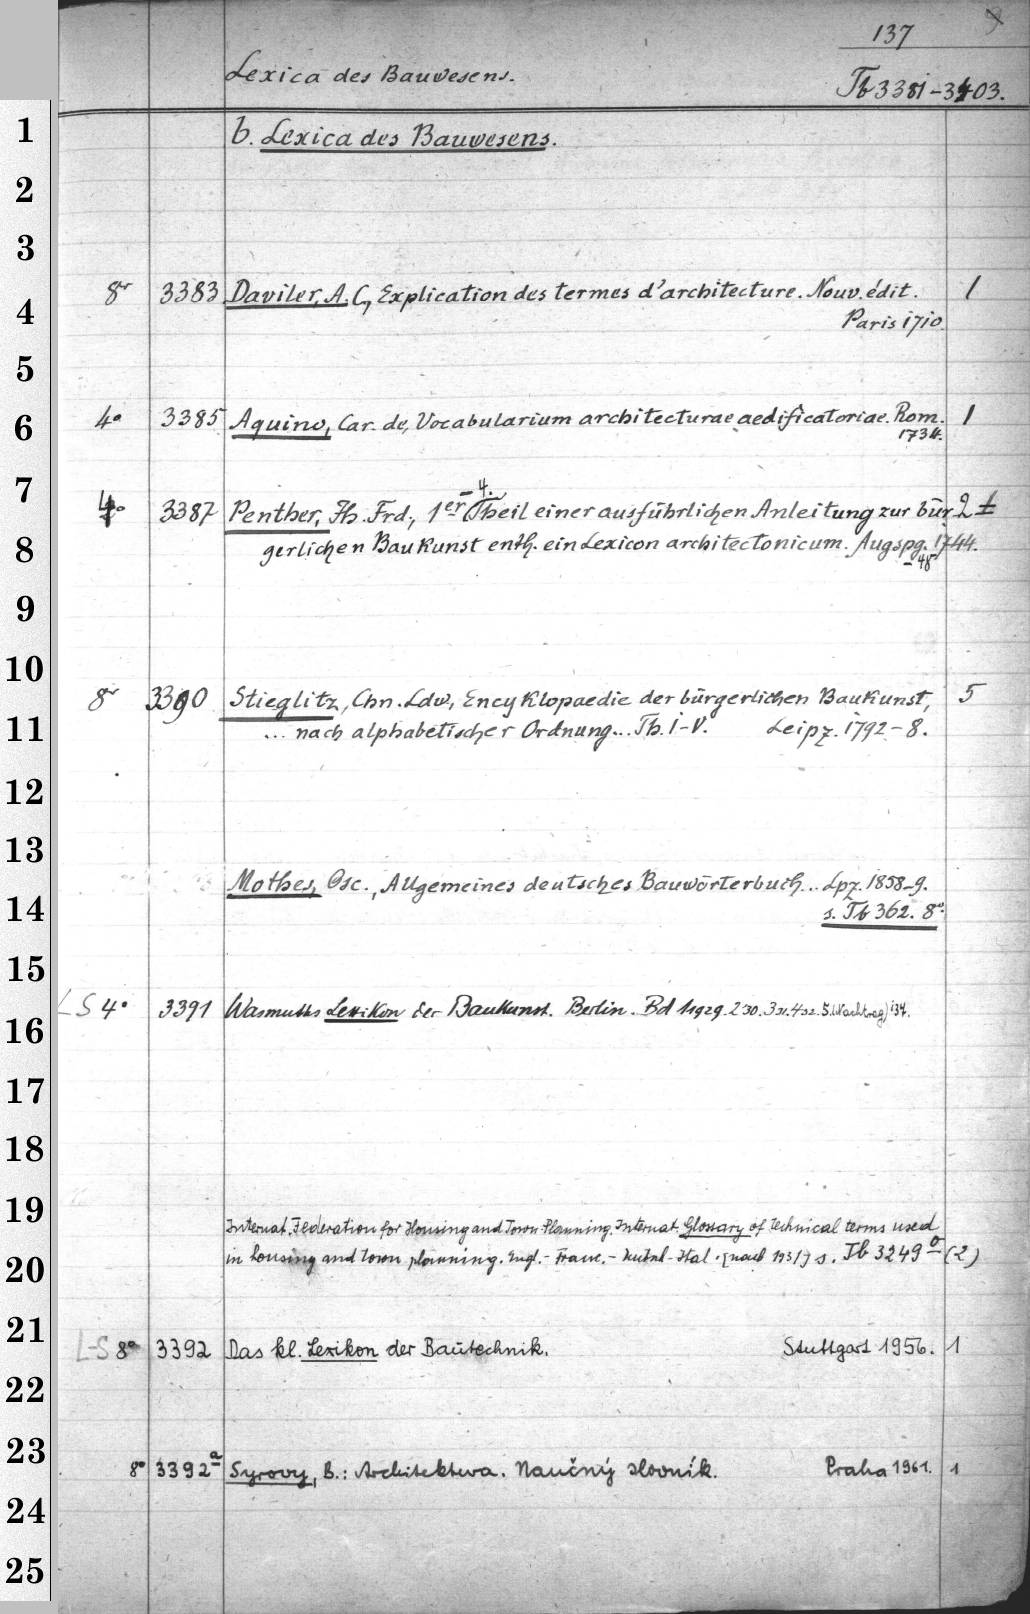 137
Lexica des Bauwesens.
Tb 3381-3403.
1
b. Lexica des Bauwesens.
2
3
8° 3383 Daviler, A. C., Explication des termes d'architecture. Nouv. édit. 1
4
Paris 1710.
5
6
4° 3385 Aquino, Car. de, Vocabularium architecturae aedificatoriae. Rom. 1
1734.
7
-4.
4° 3387 Penther, Jh. Frd., 1er Theil einer ausführlichen Anleitung zur bür- 2
8
gerlichen Baukunst enth. ein Lexicon architectonicum. Augspg. 1744.
-48
9
10
8° 3390 Stieglitz, Chn. Ldw., Encyklopaedie der bürgerlichen Baukunst, 5
11
... nach alphabetischer Ordnung... Th. I-V. Leipz. 1792-8.
12
13
Mothes, Osc., Allgemeines deutsches Bauwörterbuch... Lpz. 1858-9.
14
s. Tb 362. 8°.
15
LS 4° 3391 Wasmuths Lexikon der Baukunst. Berlin. Bd 1 1929. 2 30. 3 31. 4 32. 5. (Nachtrag) 37.
16
17
18
19
Internat. Federation for Housing and Town Planning. Internat. Glossary of technical terms used
20
in housing and town planning. Engl.- Franc.- Ital. [nach 1931] s. Tb 3249 b (2)
21
L-S 8° 3392 Das kl. Lexikon der Bautechnik. Stuttgart 1956. 1
22
23
8° 3392 a Syrovy, B.: Architektura. Naučný slovník. Praha 1961. 1
24
25